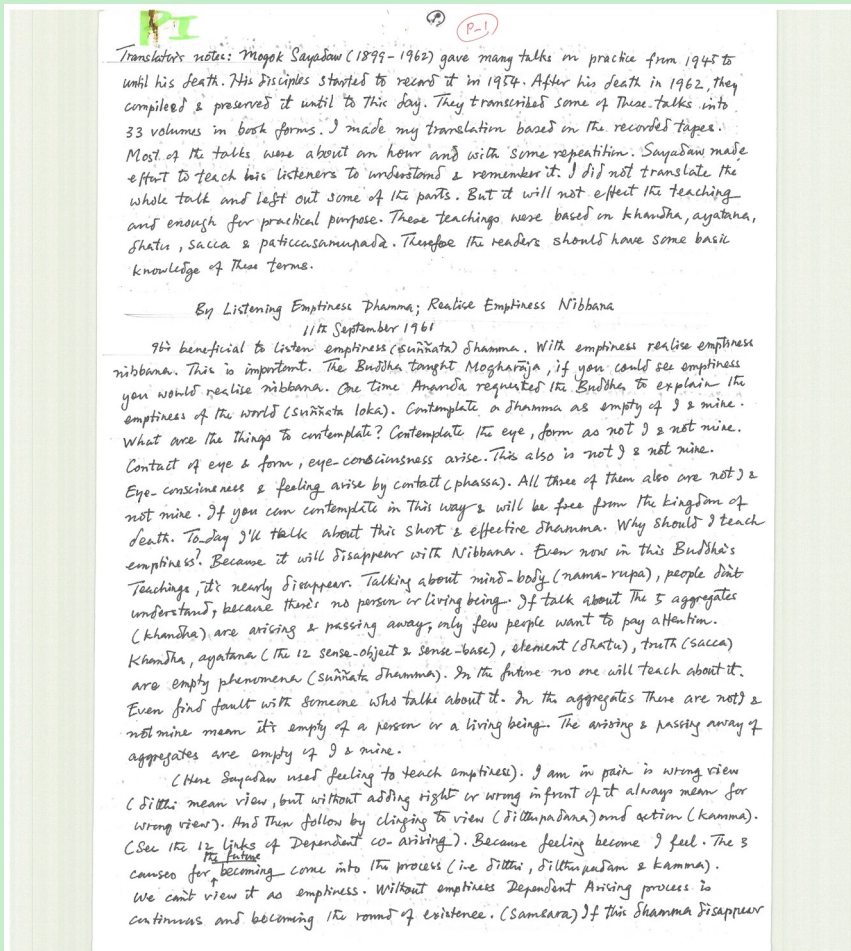 PI
P-1
Translator's notes: Mogok Sayadaw (1899-1962) gave many talks on practice from 1945 to
until his death. His disciples started to record it in 1954. After his death in 1962, they
compileed & preserved it until to this day. They transcribed some of these talks into
33 volumes in book forms. I made my translation based on the recorded tapes.
Most of the talks were about an hour and with some repeatition. Sayadaw made
effort to teach his listeners to understand & remember it. I did not translate the
whole talk and left out some of the parts. But it will not effect the teaching
and enough for practical purpose. These teachings were based on khandha, ayatana,
dhatu, sacca & paticcasamupada. Therefoe the readers should have some basic
knowledge of these terms.
By Listening Emptiness Dhamma; Realise Emptiness Nibbana
11th September 1961
It's beneficial to listen emptiness (suññata) dhamma. With emptiness realise emptiness
nibbana. This is important. The Buddha taught Mogharāja, if you could see emptiness
you would realise nibbana. One time Ananda requested the Buddha to explain the
emptiness of the world (suññata loka). Contemplate a dhamma as empty of I & mine.
What are the things to contemplate? Contemplate the eye, form as not I & not mine.
Contact of eye & form, eye-consciousness arise. This also is not I & not mine.
Eye-consciousness & feeling arise by contact (phassa). All three of them also are not I &
not mine. If you can contemplate in this way & will be free from the kingdom of
death. To-day I'll talk about this short & effective dhamma. Why should I teach
emptiness? Because it will disappear with Nibbana. Even now in this Buddha's
Teachings, it's nearly disappear. Talking about mind-body (nama-rupa), people don't
understand, because there's no person or living being. If talk about the 5 aggregates
(khandha) are arising & passing away, only few people want to pay attention.
Khandha, ayatana (the 12 sense-object & sense-base), element (dhatu), truth (sacca)
are empty phenomena (suññata dhamma). In the future no one will teach about it.
Even find fault with someone who talks about it. In the aggregates there are not I &
not mine mean it's empty of a person or a living being. The arising & passing away of
aggregates are empty of I & mine.
(Here Sayadaw used feeling to teach emptiness). I am in pain is wrong view
(ditthi mean view, but without adding right or wrong infront of it always mean for
wrong view). And then follow by clinging to view (ditthupadana) and action (kamma).
(See the 12 links of Dependent co-arising). Because feeling become I feel. The 3
causes for the future becoming come into the process (i.e ditthi, ditthupadam & kamma).
We can't view it as emptiness. Without emptiness Dependent Arising process is
continuous and becoming the round of existence. (samsara) If this dhamma disappear